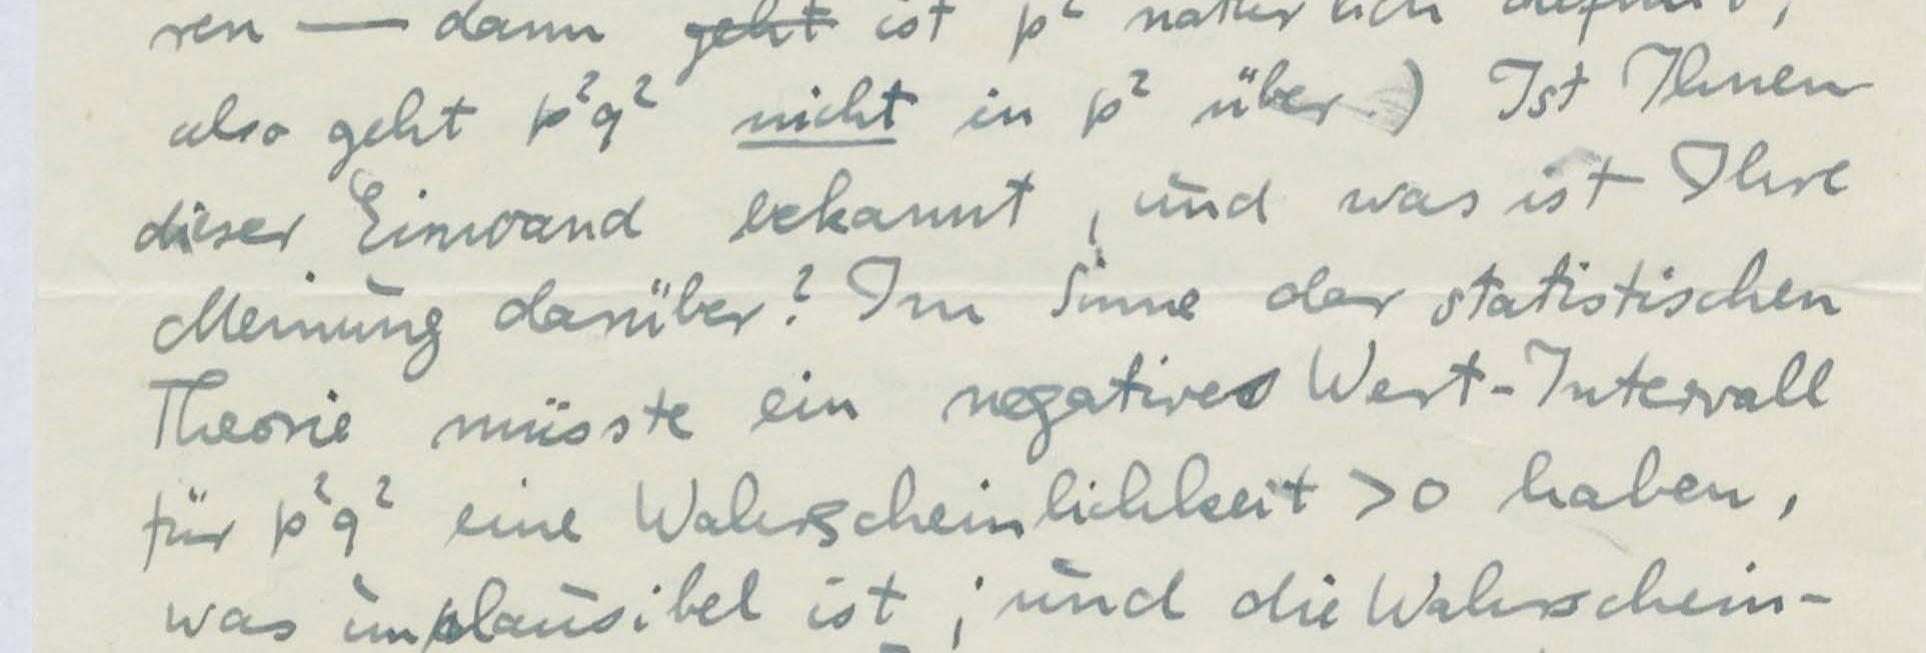 ren — dann ~~geht~~ ist p² natürlich definit,
also geht p²q² nicht in p² über.) Ist Ihnen
dieser Einwand bekannt, und was ist Ihre
Meinung darüber? Im Sinne der statistischen
Theorie müsste ein negatives Wert-Intervall
für p²q² eine Wahrscheinlichkeit >0 haben,
was implausibel ist; und die Wahrschein-